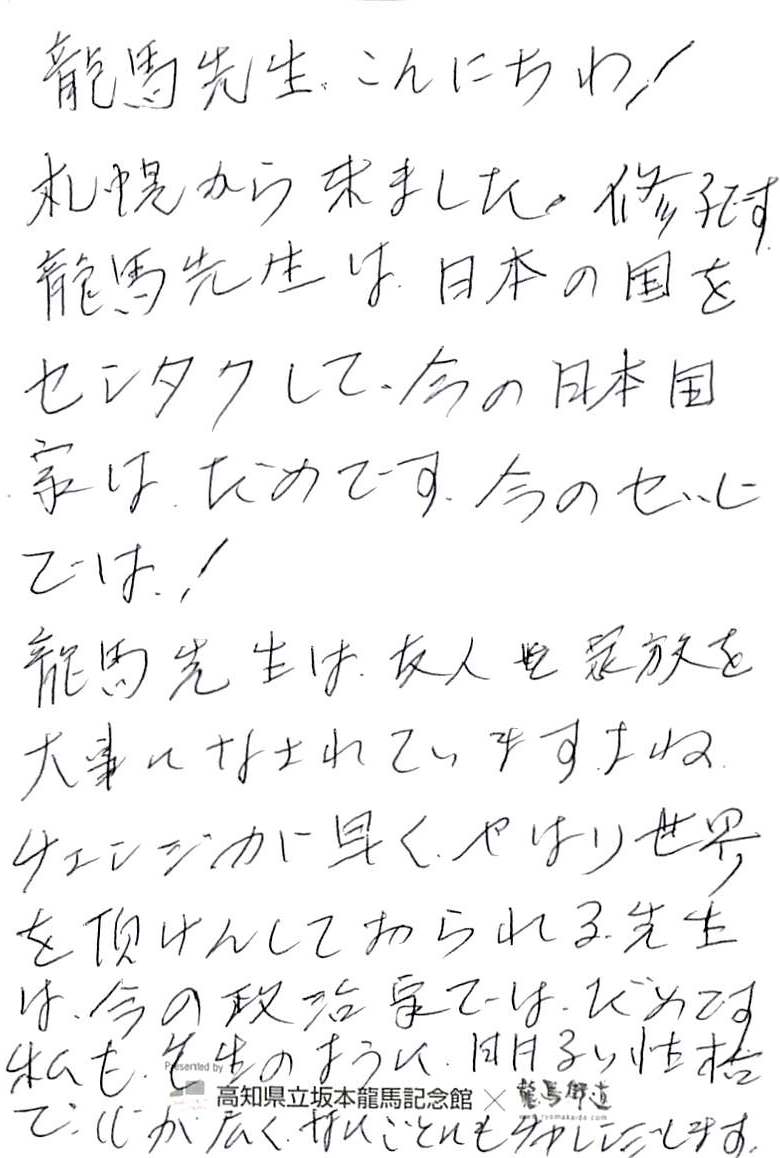 龍馬先生、こんにちわ!
札幌から来ました。修子です
龍馬先生は、日本の国を
センタクして、今の日本国
家は、だめです、今のせいじ
では、!
龍馬先生は、友人も家族を
大事になされていますよね、
チェンジが早く、やはり世界
を頂けんしておられる先生
は、今の政治家では、だめです
私も、先生のように、明るい性格
Presented by
高知県立坂本龍馬記念館 × 龍馬街道
www.ryomakaido.com
で、心が広く、なにごとにもチャレンジします、